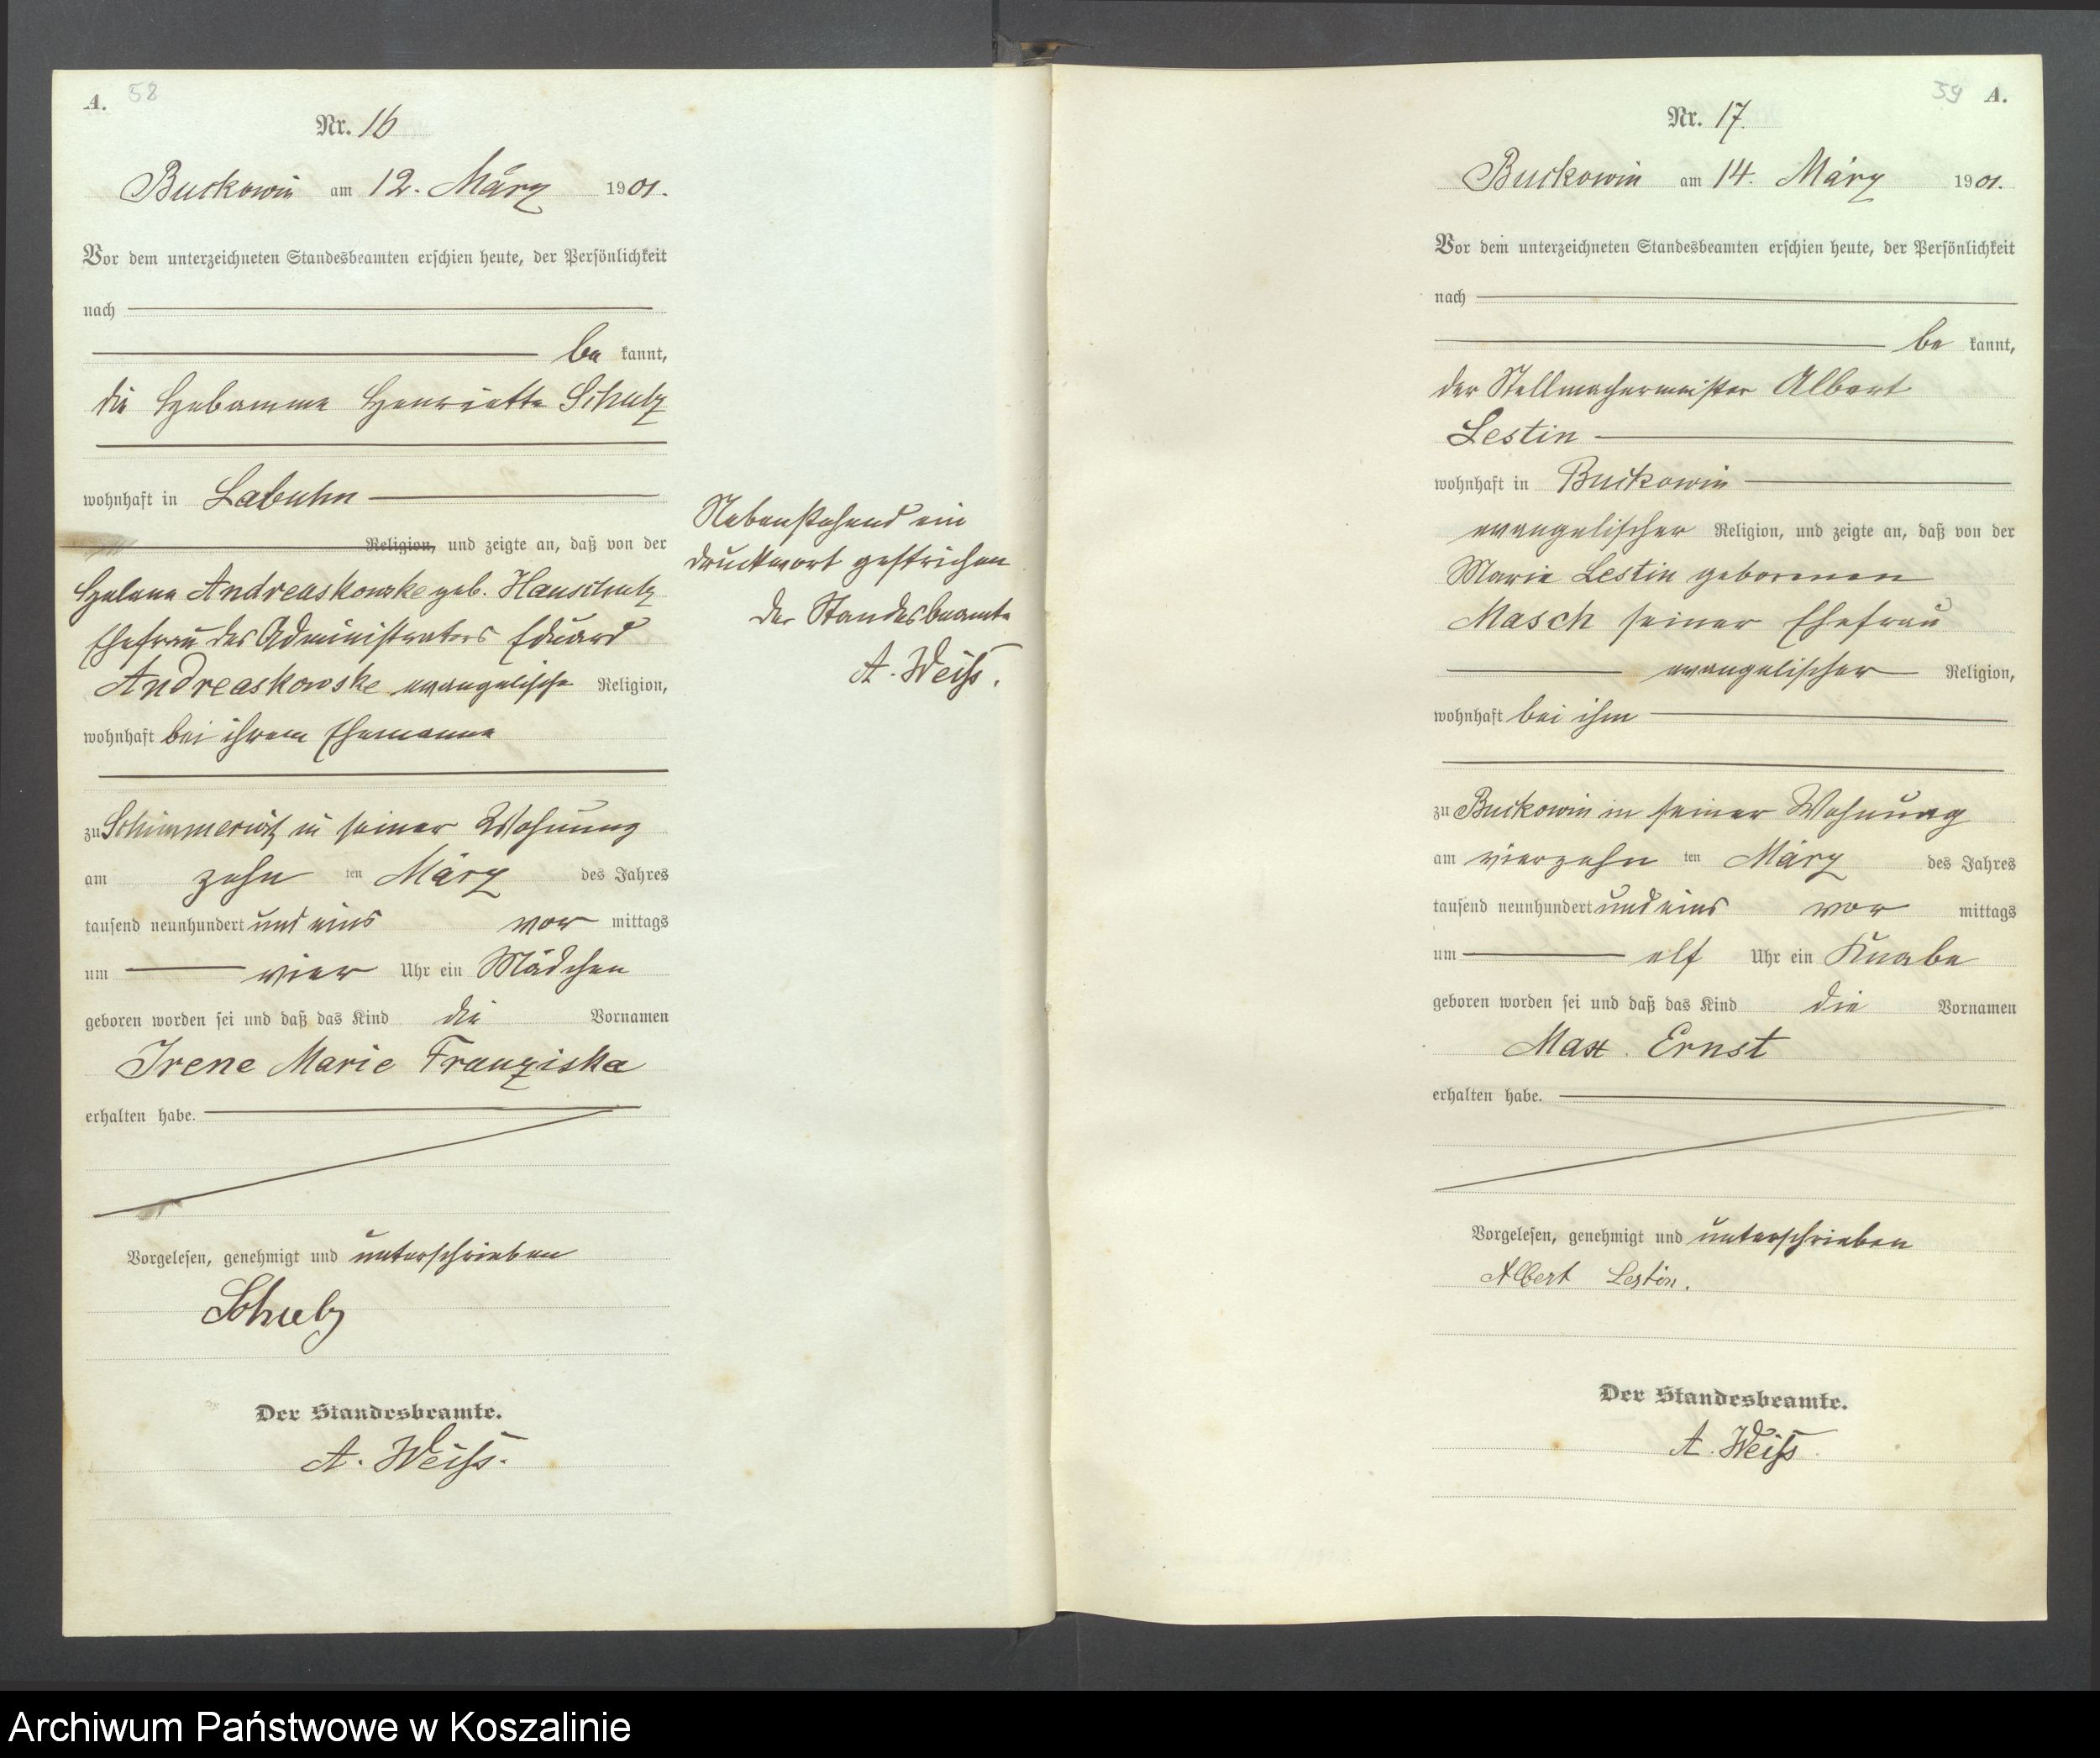 A. 58
Nr. 16
Buckowin am 12. März 1901.
Vor dem unterzeichneten Standesbeamten erschien heute, der Persönlichkeit
nach
be kannt,
die Hebamme Henriette Schulz
wohnhaft in Labuhn
Religion, und zeigte an, daß von der
Helene Andreaskowske geb. Hauschulz
Ehefrau des Administrators Eduard
Andreaskowske evangelische Religion,
wohnhaft bei ihrem Ehemanne
zu Schimmerwitz in seiner Wohnung
am zehn ten März des Jahres
tausend neunhundert und eins vor mittags
um vier Uhr ein Mädchen
geboren worden sei und daß das Kind die Vornamen
Irene Marie Franziska
erhalten habe.
Vorgelesen, genehmigt und unterschrieben
Schulz
Der Standesbeamte.
A. Weiß.
Nebenstehend ein
Druckwort gestrichen
Der Standesbeamte
A. Weiß.
59 A.
Nr. 17.
Buckowin am 14. März 1901.
Vor dem unterzeichneten Standesbeamten erschien heute, der Persönlichkeit
nach
be kannt,
der Stellmachermeister Albert
Lestin
wohnhaft in Buckowin
evangelischer Religion, und zeigte an, daß von der
Marie Lestin geborenen
Masch seiner Ehefrau
evangelischer Religion,
wohnhaft bei ihm
zu Buckowin in seiner Wohnung
am vierzehn ten März des Jahres
tausend neunhundert und eins vor mittags
um elf Uhr ein Knabe
geboren worden sei und daß das Kind die Vornamen
Max Ernst
erhalten habe.
Vorgelesen, genehmigt und unterschrieben
Albert Lestin.
Der Standesbeamte.
A. Weiß
Archiwum Państwowe w Koszalinie